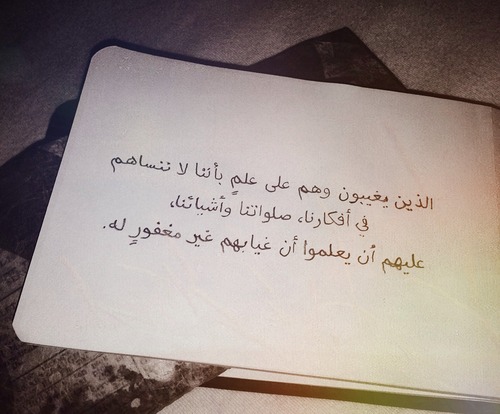 الذين يغيبون وهم على علمٍ بأننا لا ننساهم
في أفكارنا، صلواتنا وأشيائنا،
عليهم أن يعلموا أن غيابهم غير مغفورٍ له.